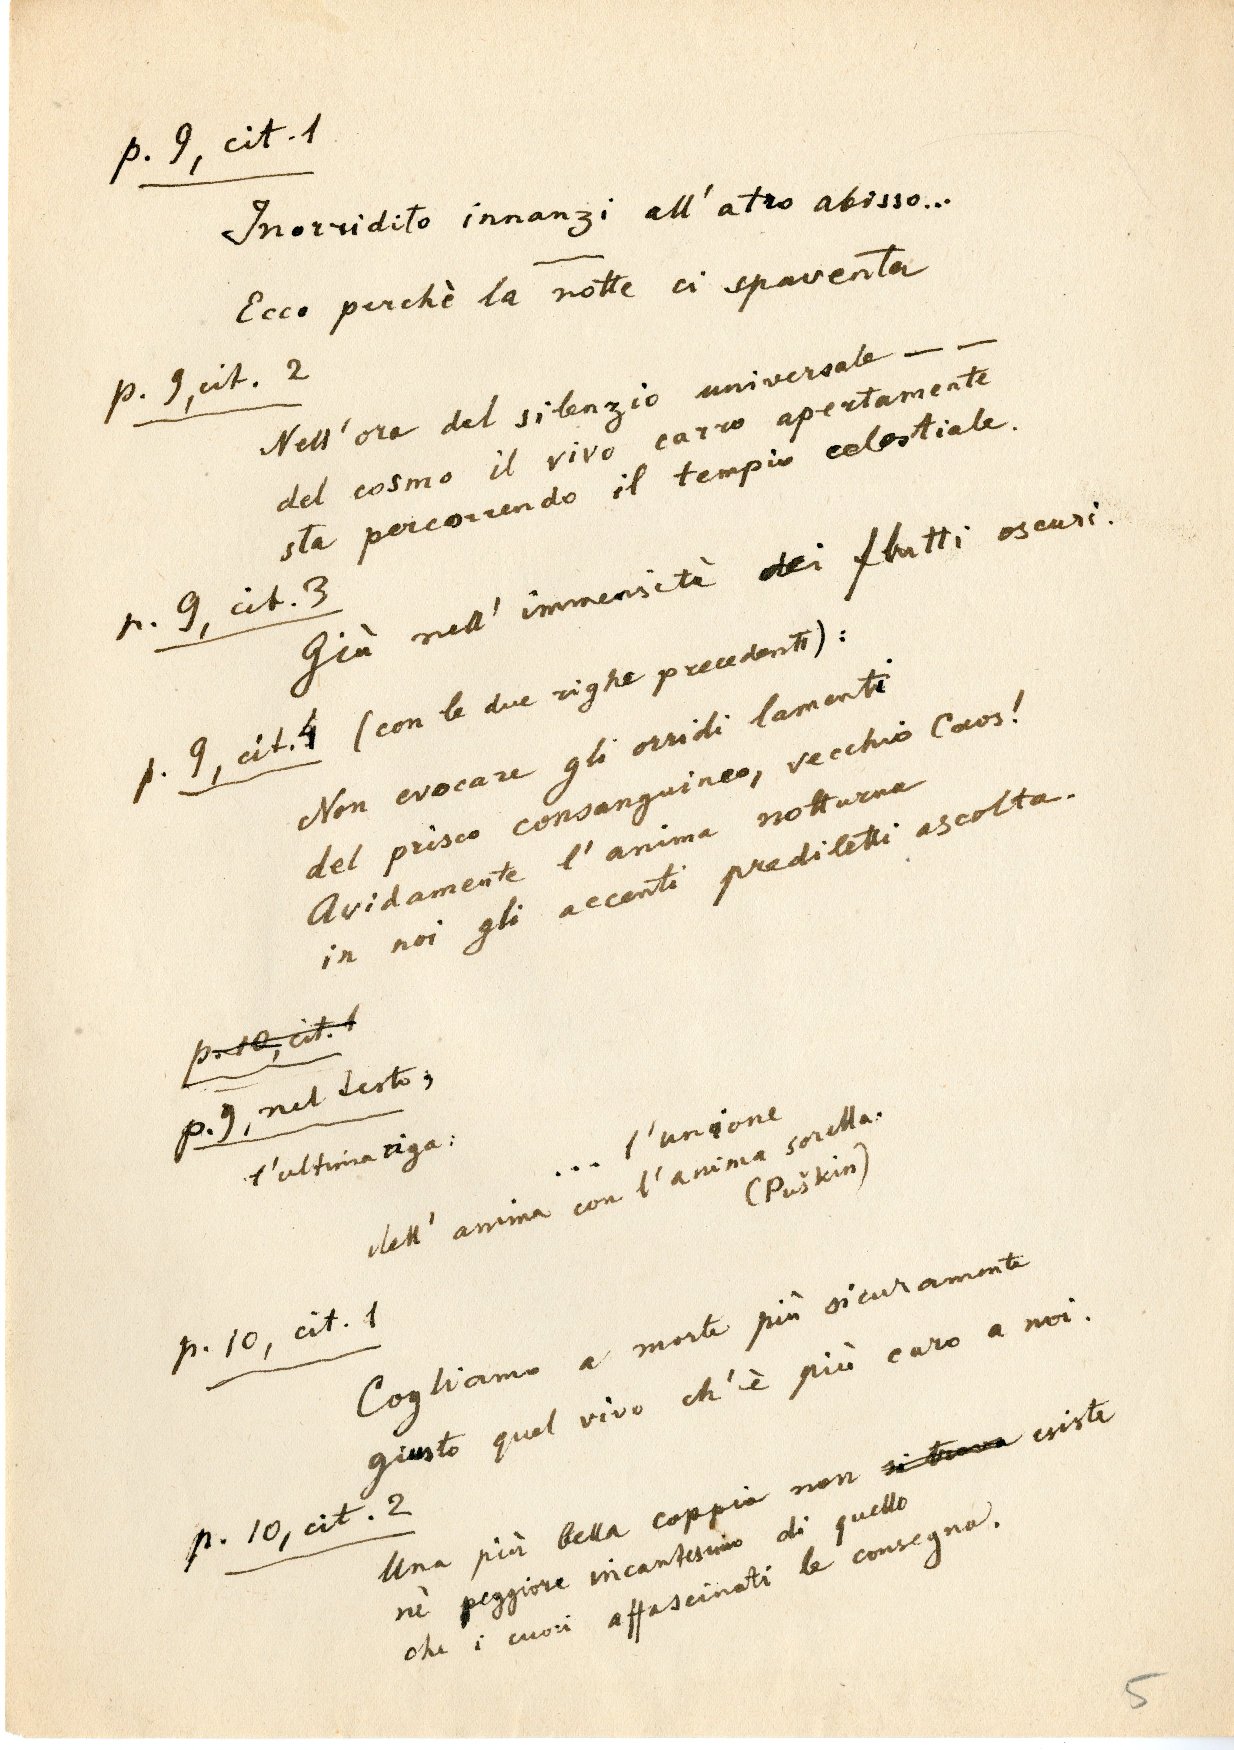 p. 9, cit. 1
Inorridito innanzi all'atro abisso...
—
Ecco perchè la notte ci spaventa
p. 9, cit. 2
Nell'ora del silenzio universale — —
del cosmo il vivo carro apertamente
sta percorrendo il tempio celestiale.
p. 9, cit. 3
Giù nell'immensità dei flutti oscuri.
p. 9, cit. 4 (con le due righe precedenti):
Non evocare gli orridi lamenti
del prisco consanguineo, vecchio Caos!
Avidamente l'anima notturna
in noi gli accenti prediletti ascolta.
p. 10, cit. 1
p. 9, nel testo,
l'ultima riga:
... l'unione
dell'anima con l'anima sorella.
(Puškin)
p. 10, cit. 1
Cogliamo a morte più sicuramente
giusto quel vivo ch'è più caro a noi.
p. 10, cit. 2
Una più bella coppia non si trova esiste
nè peggiore incantesimo di quello
che i cuori affascinati le consegna.
5